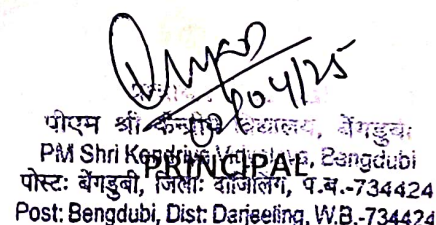 09/04/25
पीएम श्री केन्द्रीय विद्यालय, बेंगडुबी
PM Shri Kendriya Vidyalaya, Bengdubi
PRINCIPAL
पोस्टः बेंगडुबी, जिलाः दार्जिलिंग, प.ब.-734424
Post: Bengdubi, Dist: Darjeeling, W.B.-734424